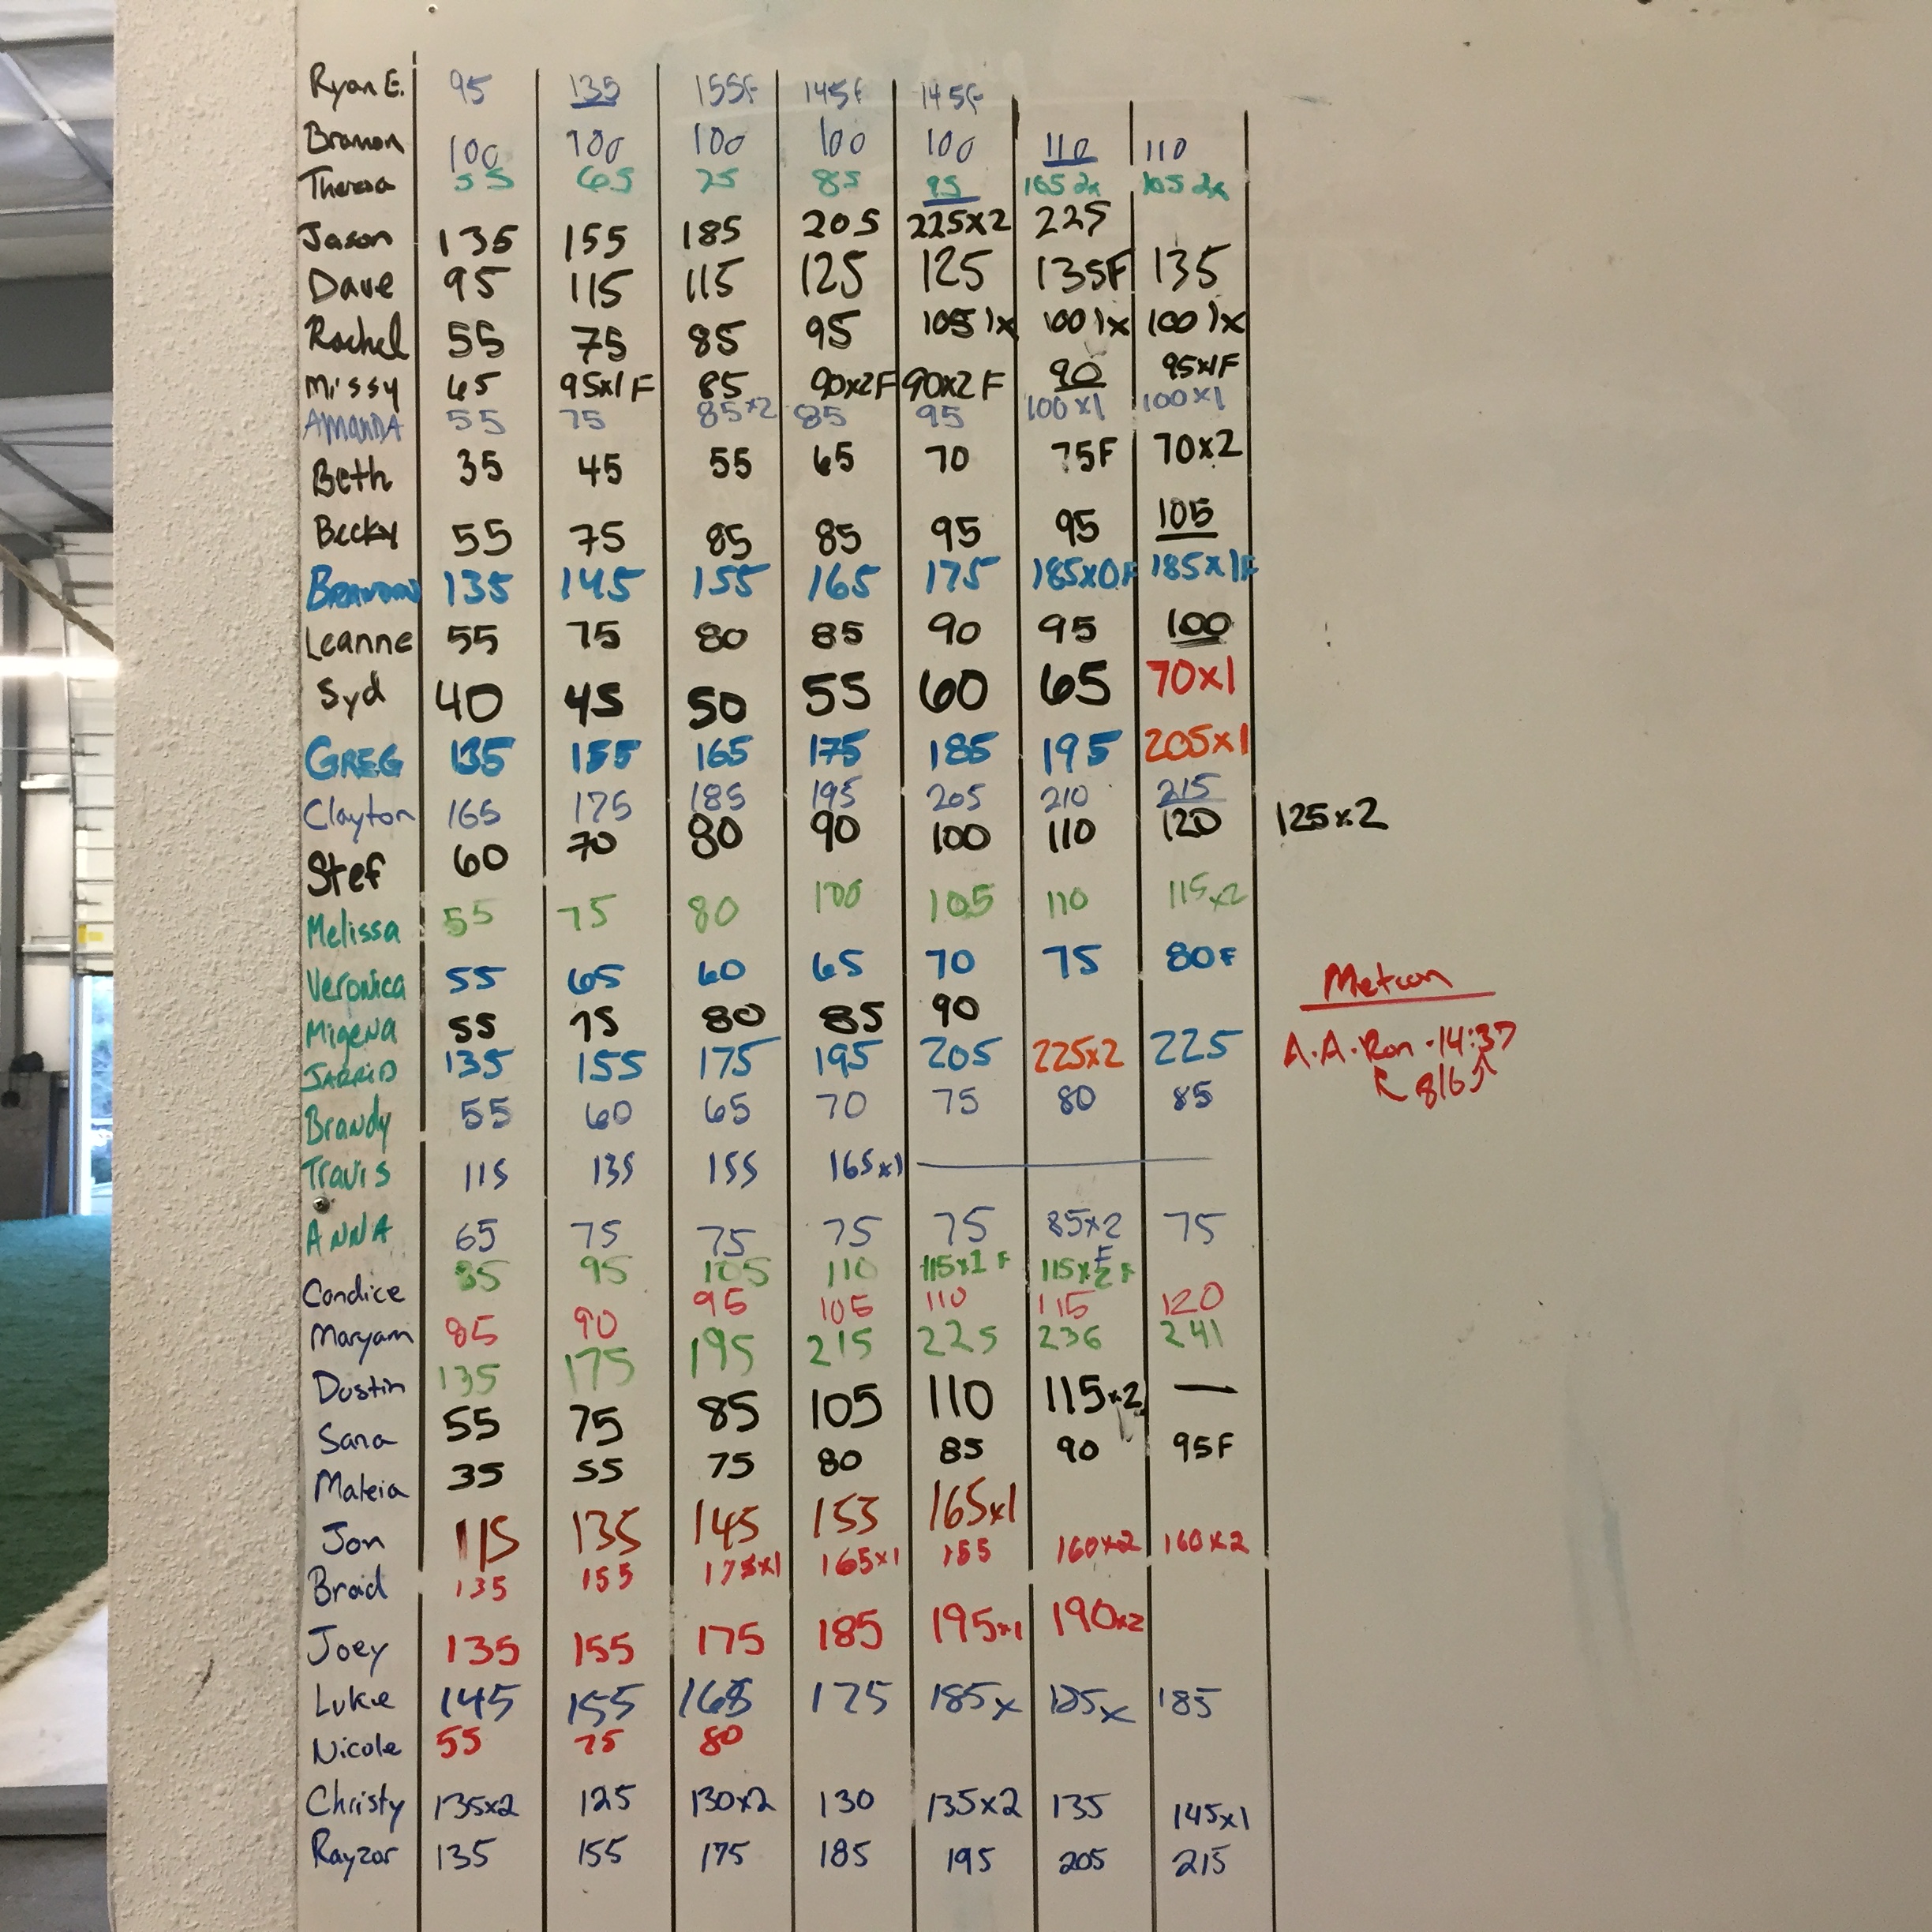 Ryan E. 95 135 155F 145F 145F
Bramon 100 100 100 100 100 110 110
Theresa 55 65 75 85 95 105 2x 105 2x
Jason 135 155 185 205 225x2 225
Dave 95 115 115 125 125 135F 135
Rachel 55 75 85 95 105 1x 100 1x 100 1x
Missy 65 95x1F 85 90x2F 90x2F 90 95x1F
AMANDA 55 75 85x2 85 95 100x1 100x1
Beth 35 45 55 65 70 75F 70x2
Becky 55 75 85 85 95 95 105
135 145 155 165 175 185x0F 185x1F
Leanne 55 75 80 85 90 95 100
Syd 40 45 50 55 60 65 70x1
GREG 135 155 165 175 185 195 205x1
Clayton 165 175 185 195 205 210 215
Stef 60 70 80 90 100 110 120 125x2
Melissa 55 75 80 100 105 110 115x2
Veronica 55 65 60 65 70 75 80F
Migena 55 75 80 85 90
JARRID 135 155 175 195 205 225x2 225
Brandy 55 60 65 70 75 80 85
Travis 115 135 155 165x1
ANNA 65 75 75 75 75 85x2 F 75
Candice 85 95 105 110 115x1 F 115x2 F
Maryam 85 90 95 105 110 115 120
Dustin 135 175 195 215 225 236 241
Sana 55 75 85 105 110 115x2 —
Mateia 35 55 75 80 85 90 95F
Jon 115 135 145 155 165x1
Braid 135 155 175x1 165x1 155 160x2 160x2
Joey 135 155 175 185 195x1 190x2
Lukie 145 155 165 175 185x 185x 185
Nicole 55 75 80
Christy 135x2 125 130x2 130 135x2 135 145x1
Rayzor 135 155 175 185 195 205 215
Metcon
A.A.Ron - 14:37
8/6